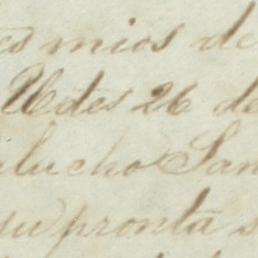 es mios de
Udes 26 de
lucho San
su pronta s